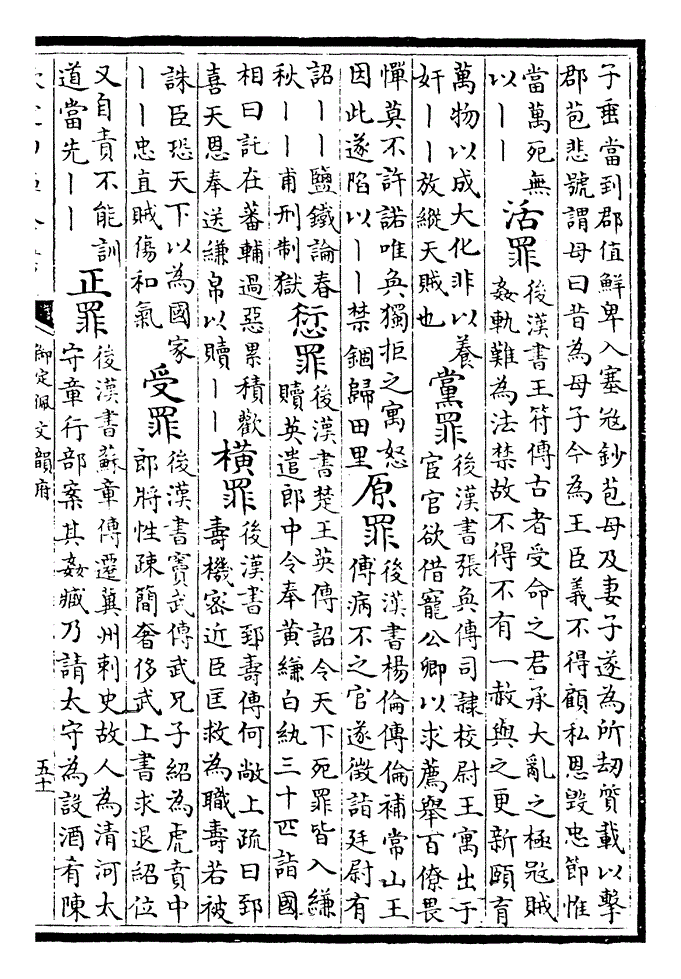 子垂當到郡值鮮卑入塞冦鈔苞母及妻子遂為所刼質載以擊
郡苞悲號謂母曰昔為母子今為王臣義不得顧私恩毀忠節惟
當萬死無
以｜｜
活罪
後漢書王符傳古者受命之君承大亂之極冦賊
姦軌難為法禁故不得不有一赦與之更新頤育
萬物以成大化非以養
奸｜｜放縱天賊也
黨罪
後漢書張奐傳司隸校尉王寓出于
宦官欲借寵公卿以求薦舉百僚畏
憚莫不許諾唯奐獨拒之寓怒
因此遂陷以｜｜禁錮歸田里
原罪
後漢書楊倫傳倫補常山王
傅病不之官遂徵詣廷尉有
詔｜｜鹽鐵論春
秋｜｜甫刑制獄
愆罪
後漢書楚王英傳詔令天下死罪皆入縑
贖英遣郎中令奉黄縑白紈三十匹詣國
相曰託在蕃輔過惡累積歡
喜天恩奉送縑帛以贖｜｜
橫罪
後漢書郅壽傳何敞上疏曰郅
壽機密近臣匡救為職壽若被
誅臣恐天下以為國家
｜｜忠直賊傷和氣
受罪
後漢書竇武傳武兄子紹為虎賁中
郎將性疎簡奢侈武上書求退紹位
又自責不能訓
道當先｜｜
正罪
後漢書蘇章傳遷冀州刺史故人為清河太
守章行部案其姦臧乃請太守為設酒肴陳
御定佩文韻府